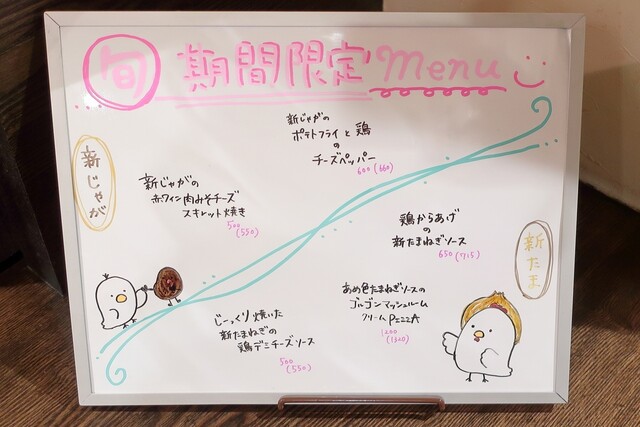 旬 期間限定 Menu
新じゃがの
ポテトフライと鶏
の
チーズペッパー
600 (660)
新じゃが
新じゃがの
赤ワイン肉みそチーズ
スキレット焼き
500
(550)
鶏からあげ
の
新たまねぎソース
650 (715)
新たま
じーっくり焼いた
新たまねぎの
鶏デミチーズソース
500
(550)
あめ色たまねぎソースの
ゴルゴンマッシュルーム
クリームPIZZA
1200
(1320)